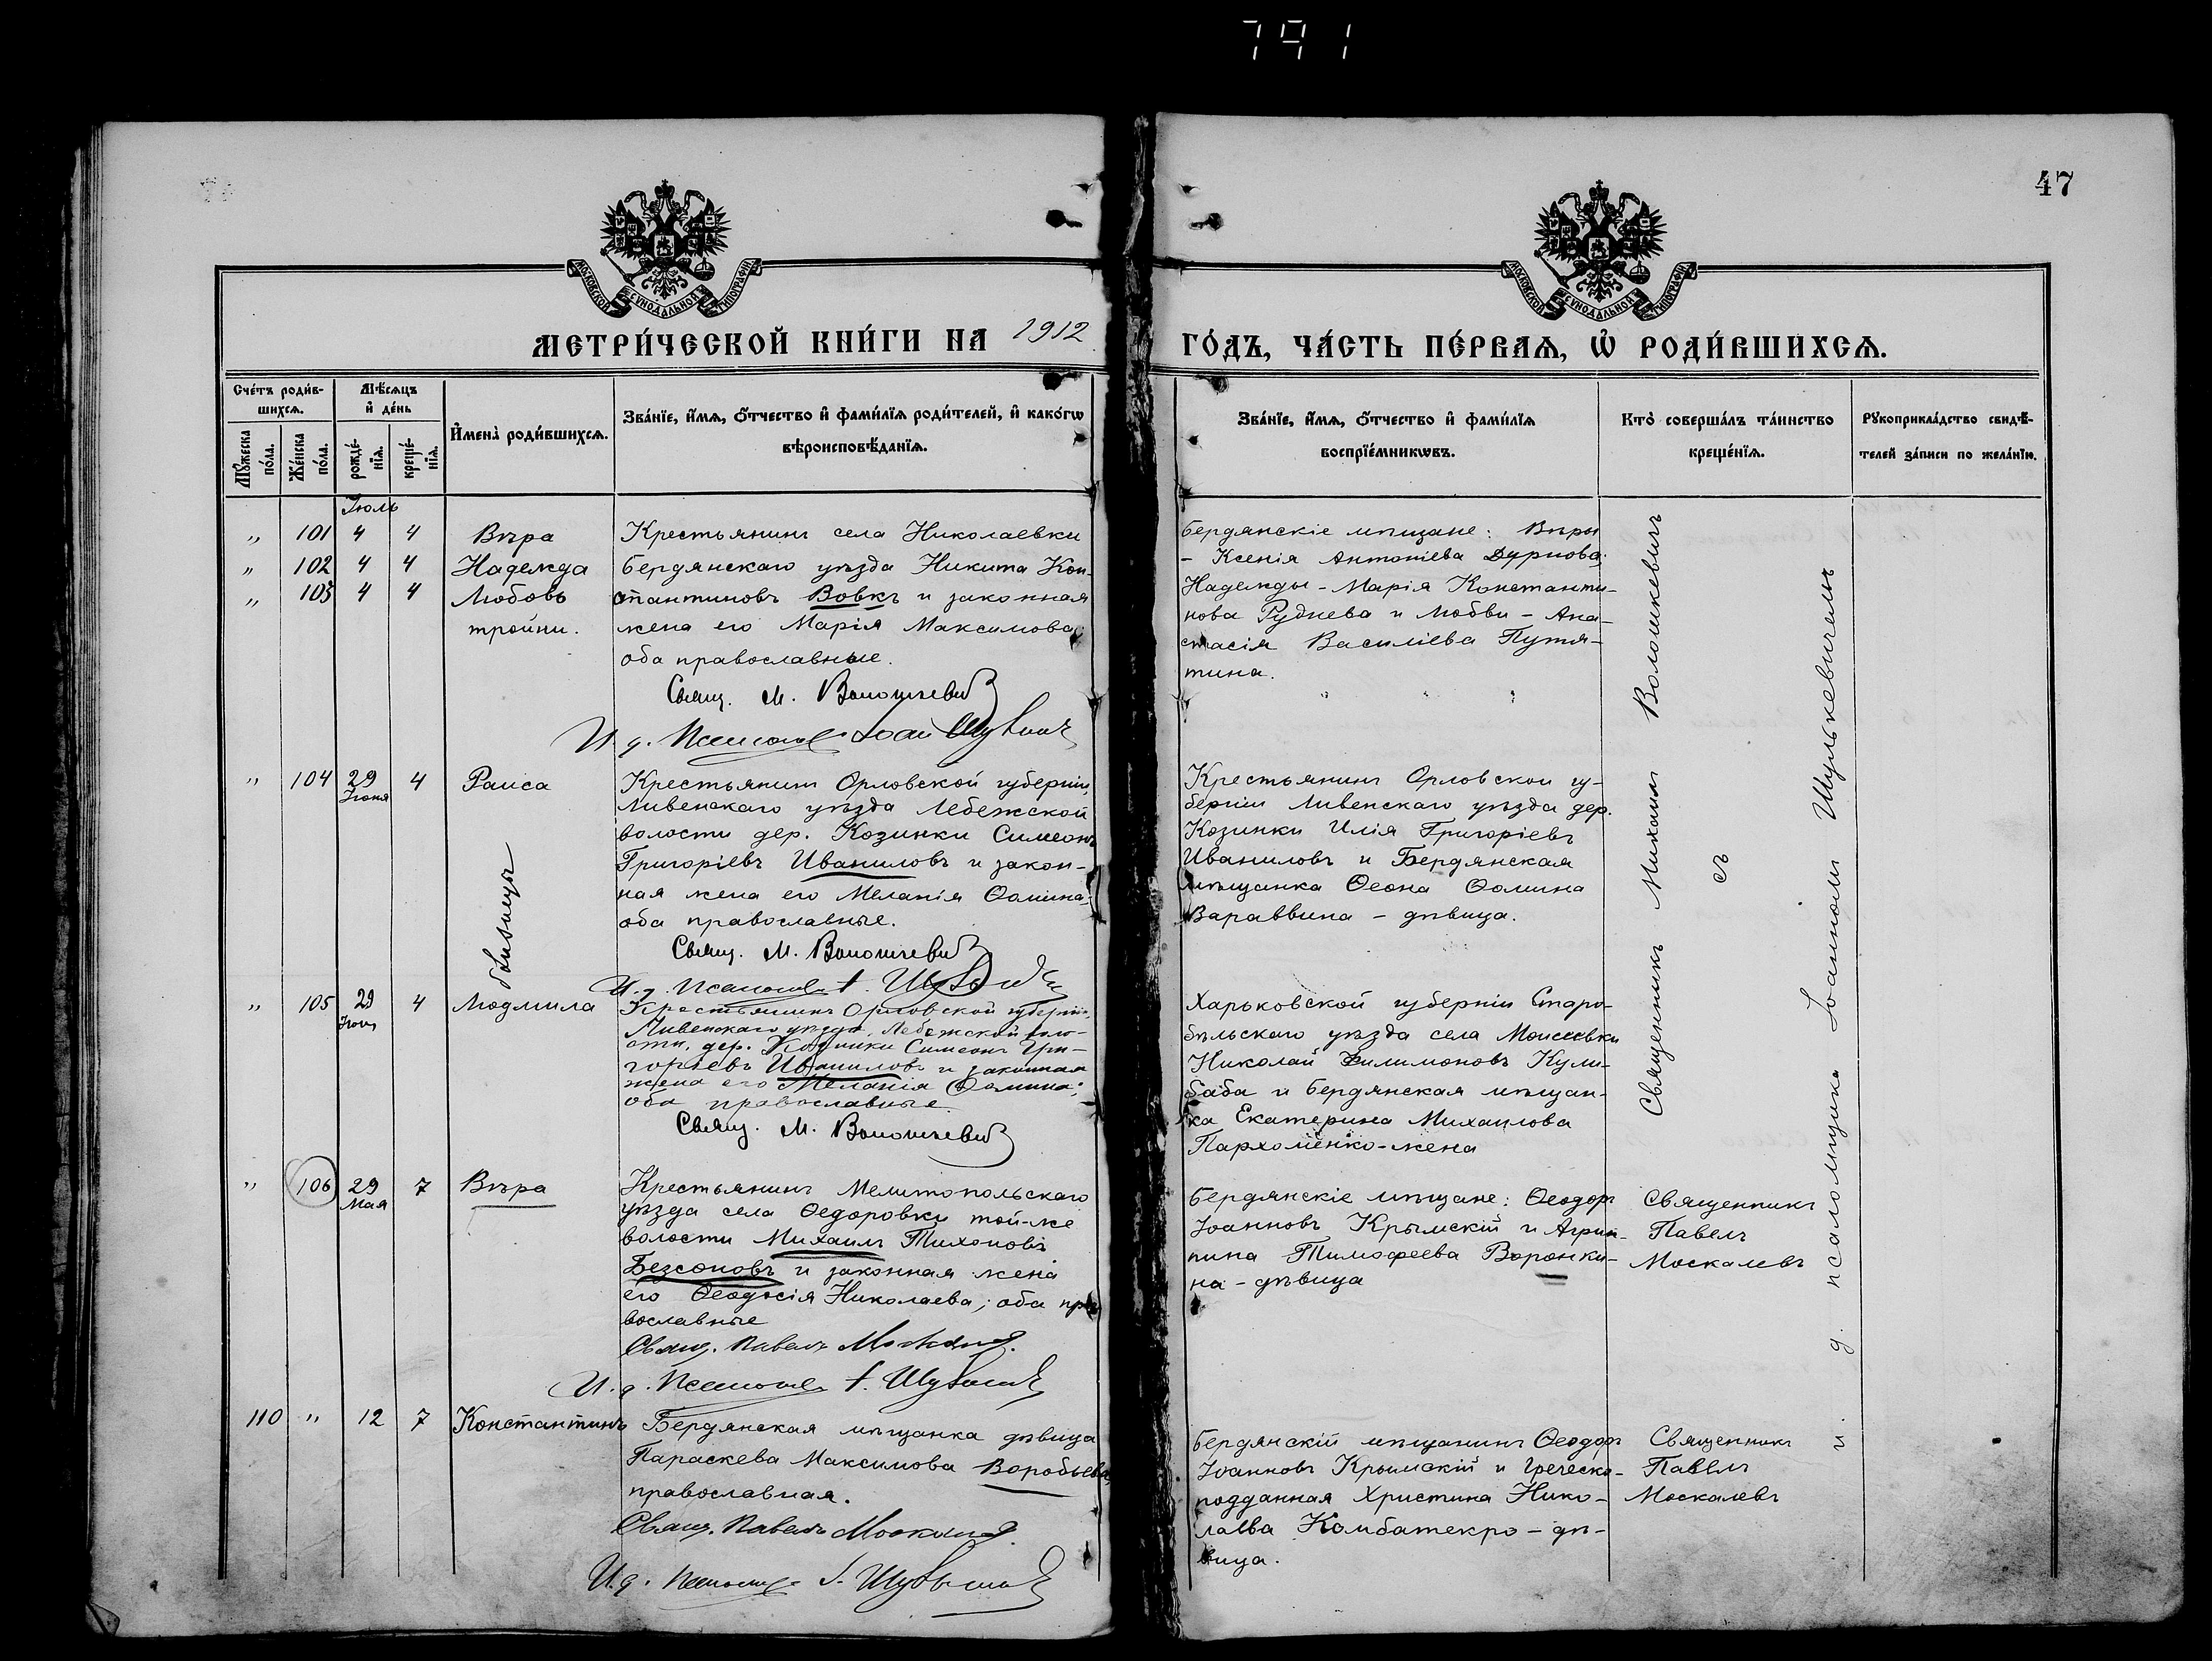 791
47
МОСКОВСКОЙ СѴНОДАЛЬНОЙ ТИПОГРАФІИ
МОСКОВСКОЙ СѴНОДАЛЬНОЙ ТИПОГРАФІИ
МЕТРИ́ЧЕСКОЙ КНИ́ГИ НА 1912 ГО́ДЪ, ЧА́СТЬ ПЕ́РВАѦ, Ѡ҆ РОДИ́ВШИХСѦ.
Сче́тъ роди́в-
шихсѧ.
Мꙋ́жеска по́ла.
Же́нска по́ла.
Мѣ́сѧцъ
и҆ де́нь
рожде́-
нїѧ.
креще́-
нїѧ.
И҆мена̀ роди́вшихсѧ.
Зва́нїе, и҆́мѧ, ѻ҆́тчество и҆ фами́лїѧ роди́телей, и҆ како́гѡ
вѣроисповѣ́данїѧ.
Зва́нїе, и҆́мѧ, ѻ҆́тчество и҆ фами́лїѧ
воспрїе́мникѡвъ.
Кто̀ соверша́лъ та́инство
креще́нїѧ.
Рꙋкоприкла́дство свидѣ́-
телей за́писи по жела́нїю.
Іюль
„ 101 4 4 Вѣра
„ 102 4 4 Надежда
„ 103 4 4 Любовь
тройни.
Крестьянинъ села Николаевки
Бердянскаго уѣзда Никита Кон-
стантиновъ Вовкъ и законная
жена его Марія Максимова;
оба православные.
Свящ. М. Волошкевичъ
И. д. Псаломщ.
Бердянскіе мѣщане: Вѣры
- Ксенія Антоніева Дурнова;
Надежды - Марія Константи-
нова Руднева и Любви - Ана-
стасія Василіева Путя-
тина.
Священникъ Михаилъ Волошкевичъ
съ
и. д. псаломщика Іоанномъ Шулькевичемъ
„ 104 29 4 Раиса
Іюня
близнецы
Крестьянинъ Орловской губерніи,
Ливенскаго уѣзда Лебежской
волости дер. Козинки Симеонъ
Григоріевъ Иваниловъ и закон-
ная жена его Меланія Ѳомина;
оба православные.
Свящ. М. Волошкевичъ
И. д. Псаломщ. І.
Крестьянинъ Орловской гу-
берніи Ливенскаго уѣзда дер.
Козинки Илія Григоріевъ
Иваниловъ и Бердянская
мѣщанка Ѳеона Ѳомина
Вараввина - дѣвица.
„ 105 29 4 Людмила
Крестьянинъ Орловской губерніи,
Ливенскаго уѣзда, Лебежской воло-
сти, дер. Козинки Симеонъ Гри-
горіевъ Иваниловъ и законная
жена его Меланія Ѳомина;
оба православные.
Свящ. М. Волошкевичъ
Харьковской губерніи Старо-
бѣльскаго уѣзда села Моисеевки
Николай Филимоновъ Кули-
баба и Бердянская мѣщан-
ка Екатерина Михаилова
Пархоменко-жена
„ 106 29 7 Вѣра
Мая
Крестьянинъ Мелитопольскаго
уѣзда села Ѳедоровки той-же
волости Михаилъ Тихоновъ
Безсоновъ и законная жена
его Ѳеодосія Николаева; оба пра
вославные
Свящ. Павелъ Москалевъ.
И. д. Псаломщ. І.
Бердянскіе мѣщане: Ѳеодоръ
Іоанновъ Крымскій и Агрип-
пина Тимофеева Воронки-
на - дѣвица
Священникъ
Павелъ
Москалевъ
110 „ 12 7 Константинъ
Бердянская мѣщанка дѣвица
Параскева Максимова Воробьева,
православная.
Свящ. Павелъ Москалевъ.
И. д. Псаломщ. І.
Бердянскій мѣщанинъ Ѳеодоръ
Іоанновъ Крымскій и Греческо-
подданная Христина Нико-
лаева Комбатекро - дѣ-
вица.
Священникъ
Павелъ
Москалевъ